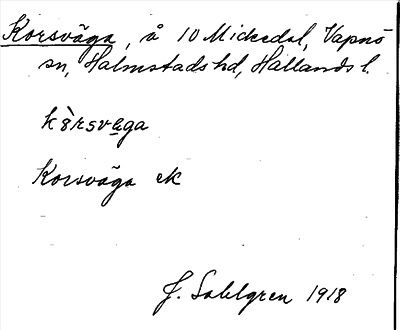 Korsväga, å 10 Mickedal, Vapnö
sn, Halmstads hd, Hallands l.
Korsväga ek
J. Sahlgren 1918